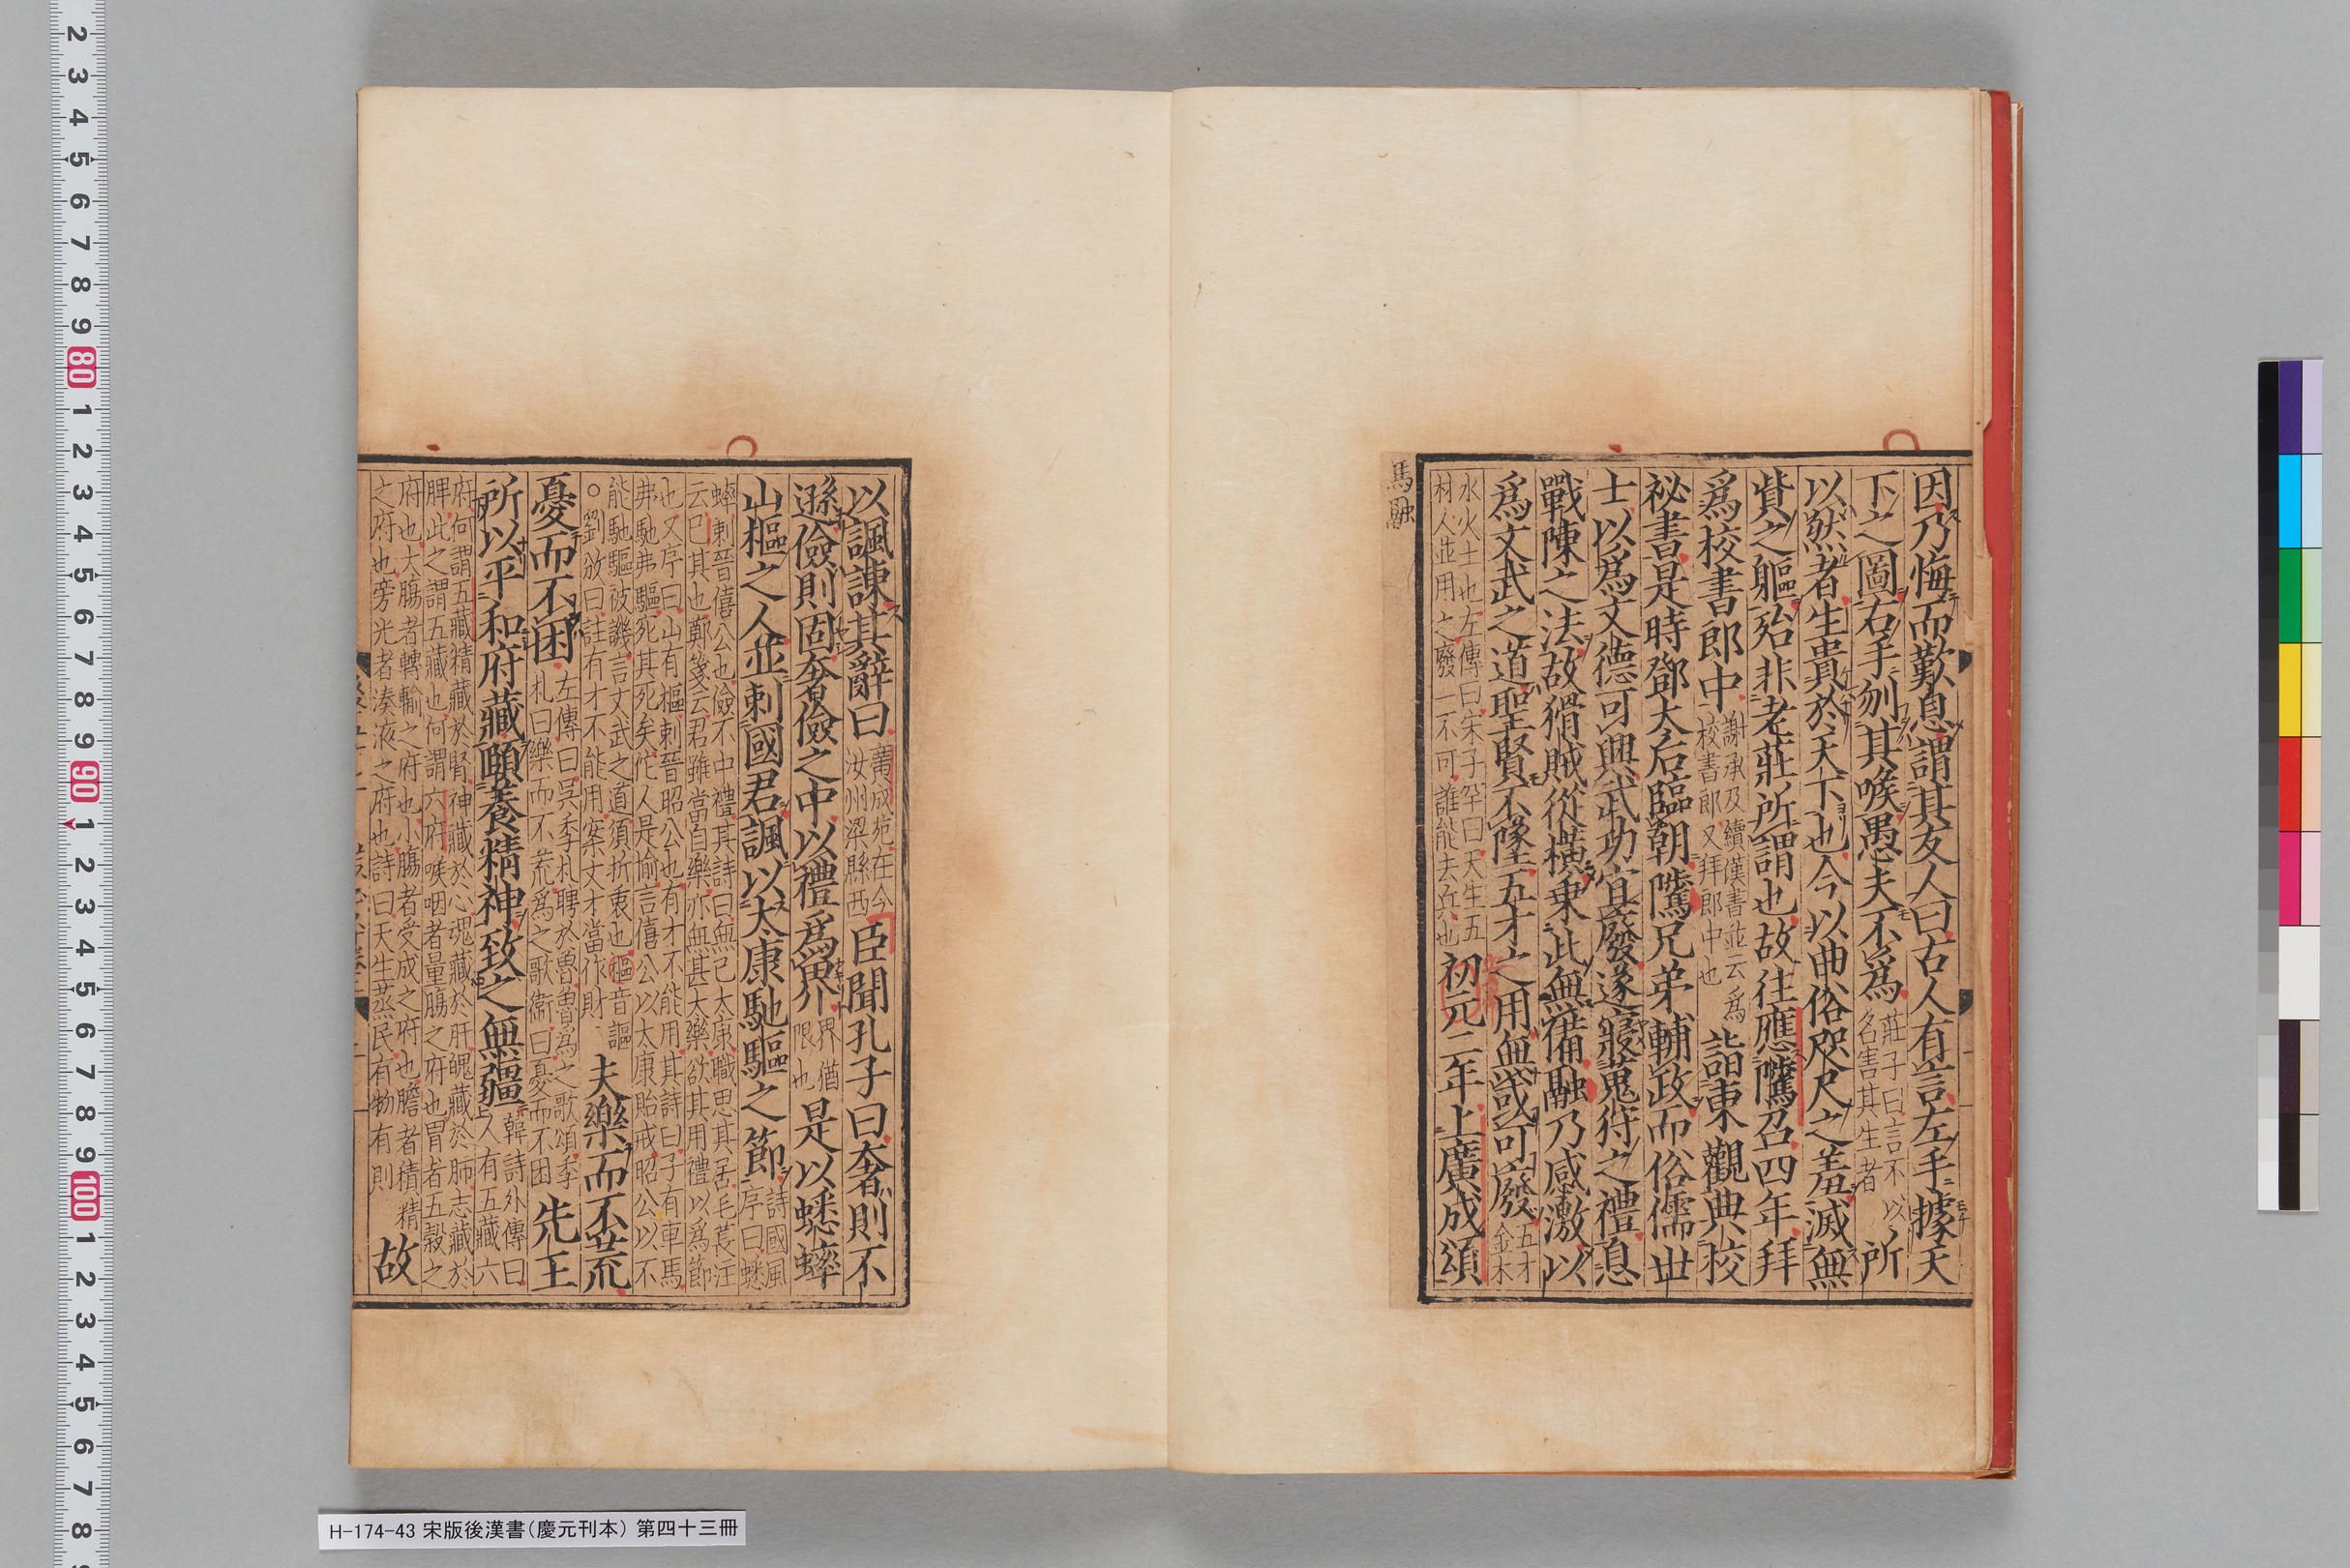 因乃悔而歎息謂其友人曰古人有言左手據天
下之圖右手刎其喉愚夫不爲莊子曰言不以名害其生者所
以然者生貴於天下也今以曲俗咫尺之羞滅無
貲之軀殆非老莊所謂也故往應騭召四年拜
爲校書郎中謝承及續漢書並云爲校書郎又拜郎中也詣東觀典校
祕書是時鄧太后臨朝騭兄弟輔政而俗儒世
士以爲文德可興武功宜廢遂寢蒐狩之禮息
戰陳之法故猾賊從橫乘此無備融乃感激以
爲文武之道聖賢不墜五才之用無或可廢五才金木
水火土也左傳曰宋子罕曰天生五材人並用之廢一不可誰能去兵也初元二年上廣成頌
馬融
以諷諫其辭曰廣成苑在今汝州梁縣西臣聞孔子曰奢則不
遜儉則固奢儉之中以禮爲界界猶限也是以蟋蟀
山樞之人並刺國君諷以太康馳驅之節詩國風序曰蟋
蟀刺晉僖公也儉不中禮其詩曰無已太康職思其居毛萇注
云已甚也鄭箋云君雖當自樂亦無甚太樂欲其用禮以爲節
也又序曰山有樞刺晉昭公也有才不能用其詩曰子有車馬
弗馳弗驅死其死矣佗人是愉言僖公以太康貽戒昭公以不
能馳驅被譏言文武之道須折衷也樞音謳
○劉攽曰註有才不能用案文才當作財夫樂而不荒
憂而不困左傳曰吳季札聘於魯魯爲之歌頌季札曰樂而不荒爲之歌衞曰憂而不困先王
所以平和府藏頤養精神致之無疆韓詩外傳曰人有五藏六
府何謂五藏精藏於腎神藏於心魂藏於肝魄藏於肺志藏於
脾此之謂五藏也何謂六府喉咽者量腸之府也胃者五穀之
府也大腸者轉輸之府也小腸者受成之府也膽者積精
之府也旁光者湊液之府也詩曰天生蒸民有物有則故
H-174-43 宋版後漢書（慶元刊本） 第四十三冊